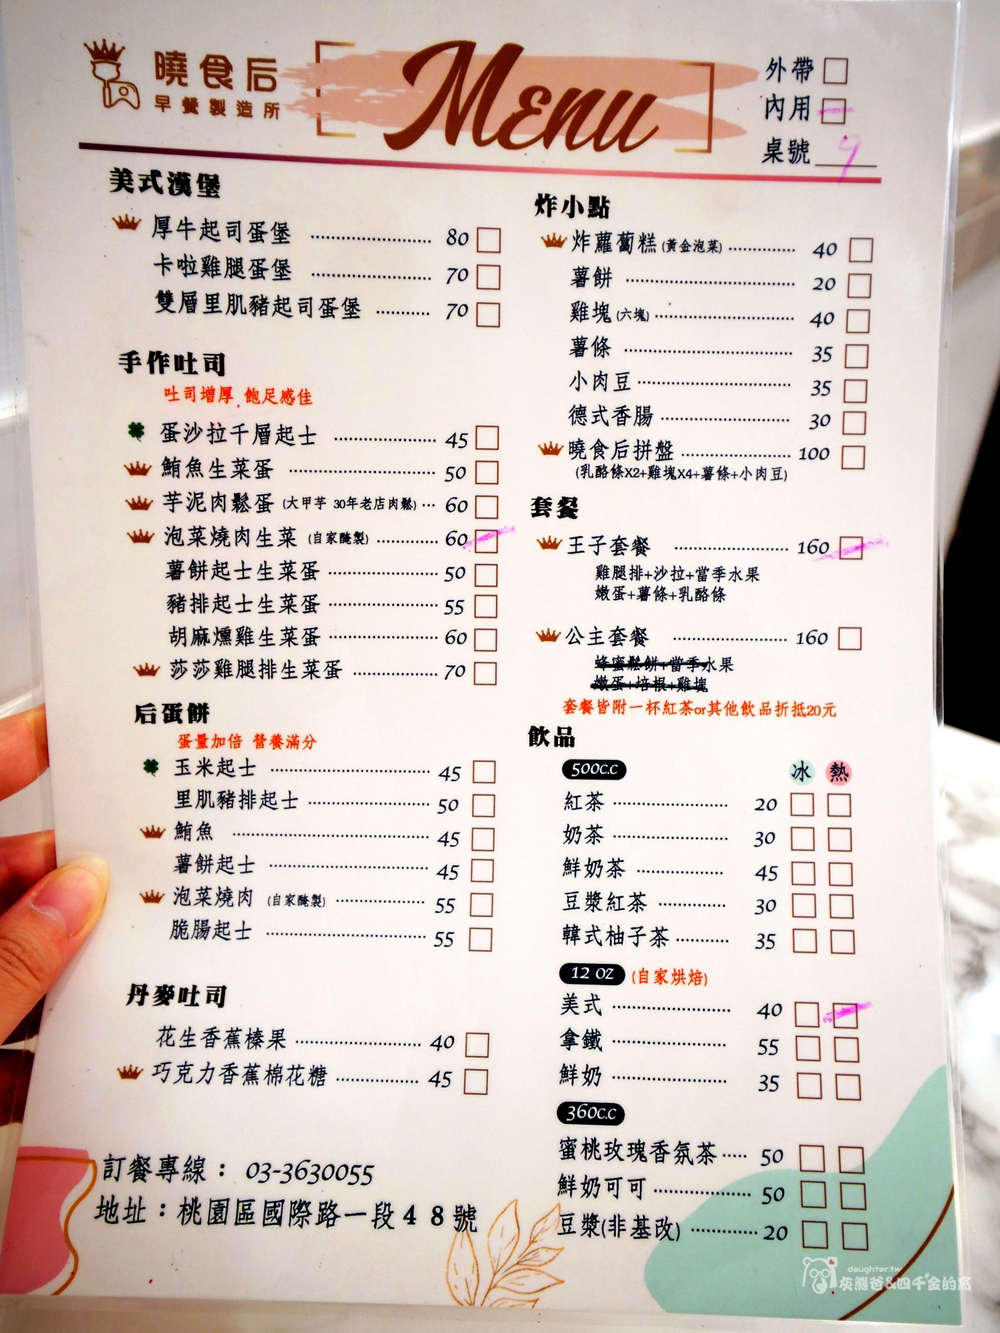 曉食后
早餐製造所
Menu
外帶
內用
桌號 9
美式漢堡
厚牛起司蛋堡 80
卡啦雞腿蛋堡 70
雙層里肌豬起司蛋堡 70
手作吐司
吐司增厚 飽足感佳
蛋沙拉千層起士 45
鮪魚生菜蛋 50
芋泥肉鬆蛋 (大甲芋 30年老店肉鬆) 60
泡菜燒肉生菜 (自家醃製) 60
薯餅起士生菜蛋 50
豬排起士生菜蛋 55
胡麻燻雞生菜蛋 60
莎莎雞腿排生菜蛋 70
后蛋餅
蛋量加倍 營養滿分
玉米起士 45
里肌豬排起士 50
鮪魚 45
薯餅起士 45
泡菜燒肉 (自家醃製) 55
脆腸起士 55
丹麥吐司
花生香蕉榛果 40
巧克力香蕉棉花糖 45
訂餐專線： 03-3630055
地址：桃園區國際路一段48號
炸小點
炸蘿蔔糕(黃金泡菜) 40
薯餅 20
雞塊(六塊) 40
薯條 35
小肉豆 35
德式香腸 30
曉食后拼盤 100
(乳酪條X2+雞塊X4+薯條+小肉豆)
套餐
王子套餐 160
雞腿排+沙拉+當季水果
嫩蛋+薯條+乳酪條
公主套餐 160
蜂蜜鬆餅+當季水果
嫩蛋+培根+雞塊
套餐皆附一杯紅茶or其他飲品折抵20元
飲品
500c.c 冰 熱
紅茶 20
奶茶 30
鮮奶茶 45
豆漿紅茶 30
韓式柚子茶 35
12 oz (自家烘焙)
美式 40
拿鐵 55
鮮奶 35
360c.c
蜜桃玫瑰香氛茶 50
鮮奶可可 50
豆漿(非基改) 20
daughter.tw
灰鵝爸&四千金的窩